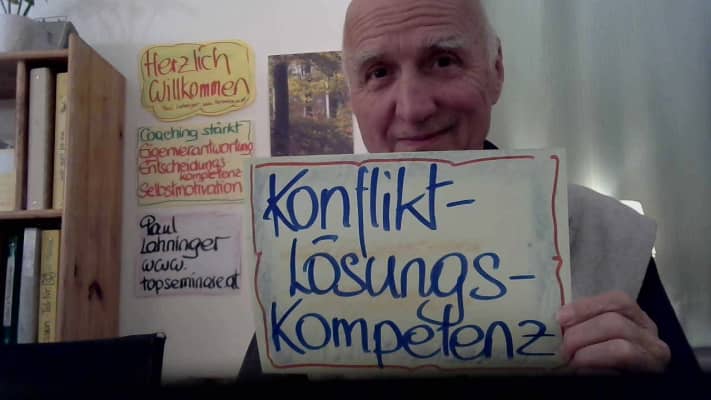 Herzlich
Willkommen
Coaching stärkt
Eigenverantwortung
Entscheidungs-
kompetenz
Selbstmotivation
Paul
Lahninger
www.
topseminare.at
Konflikt-
Lösungs-
Kompetenz